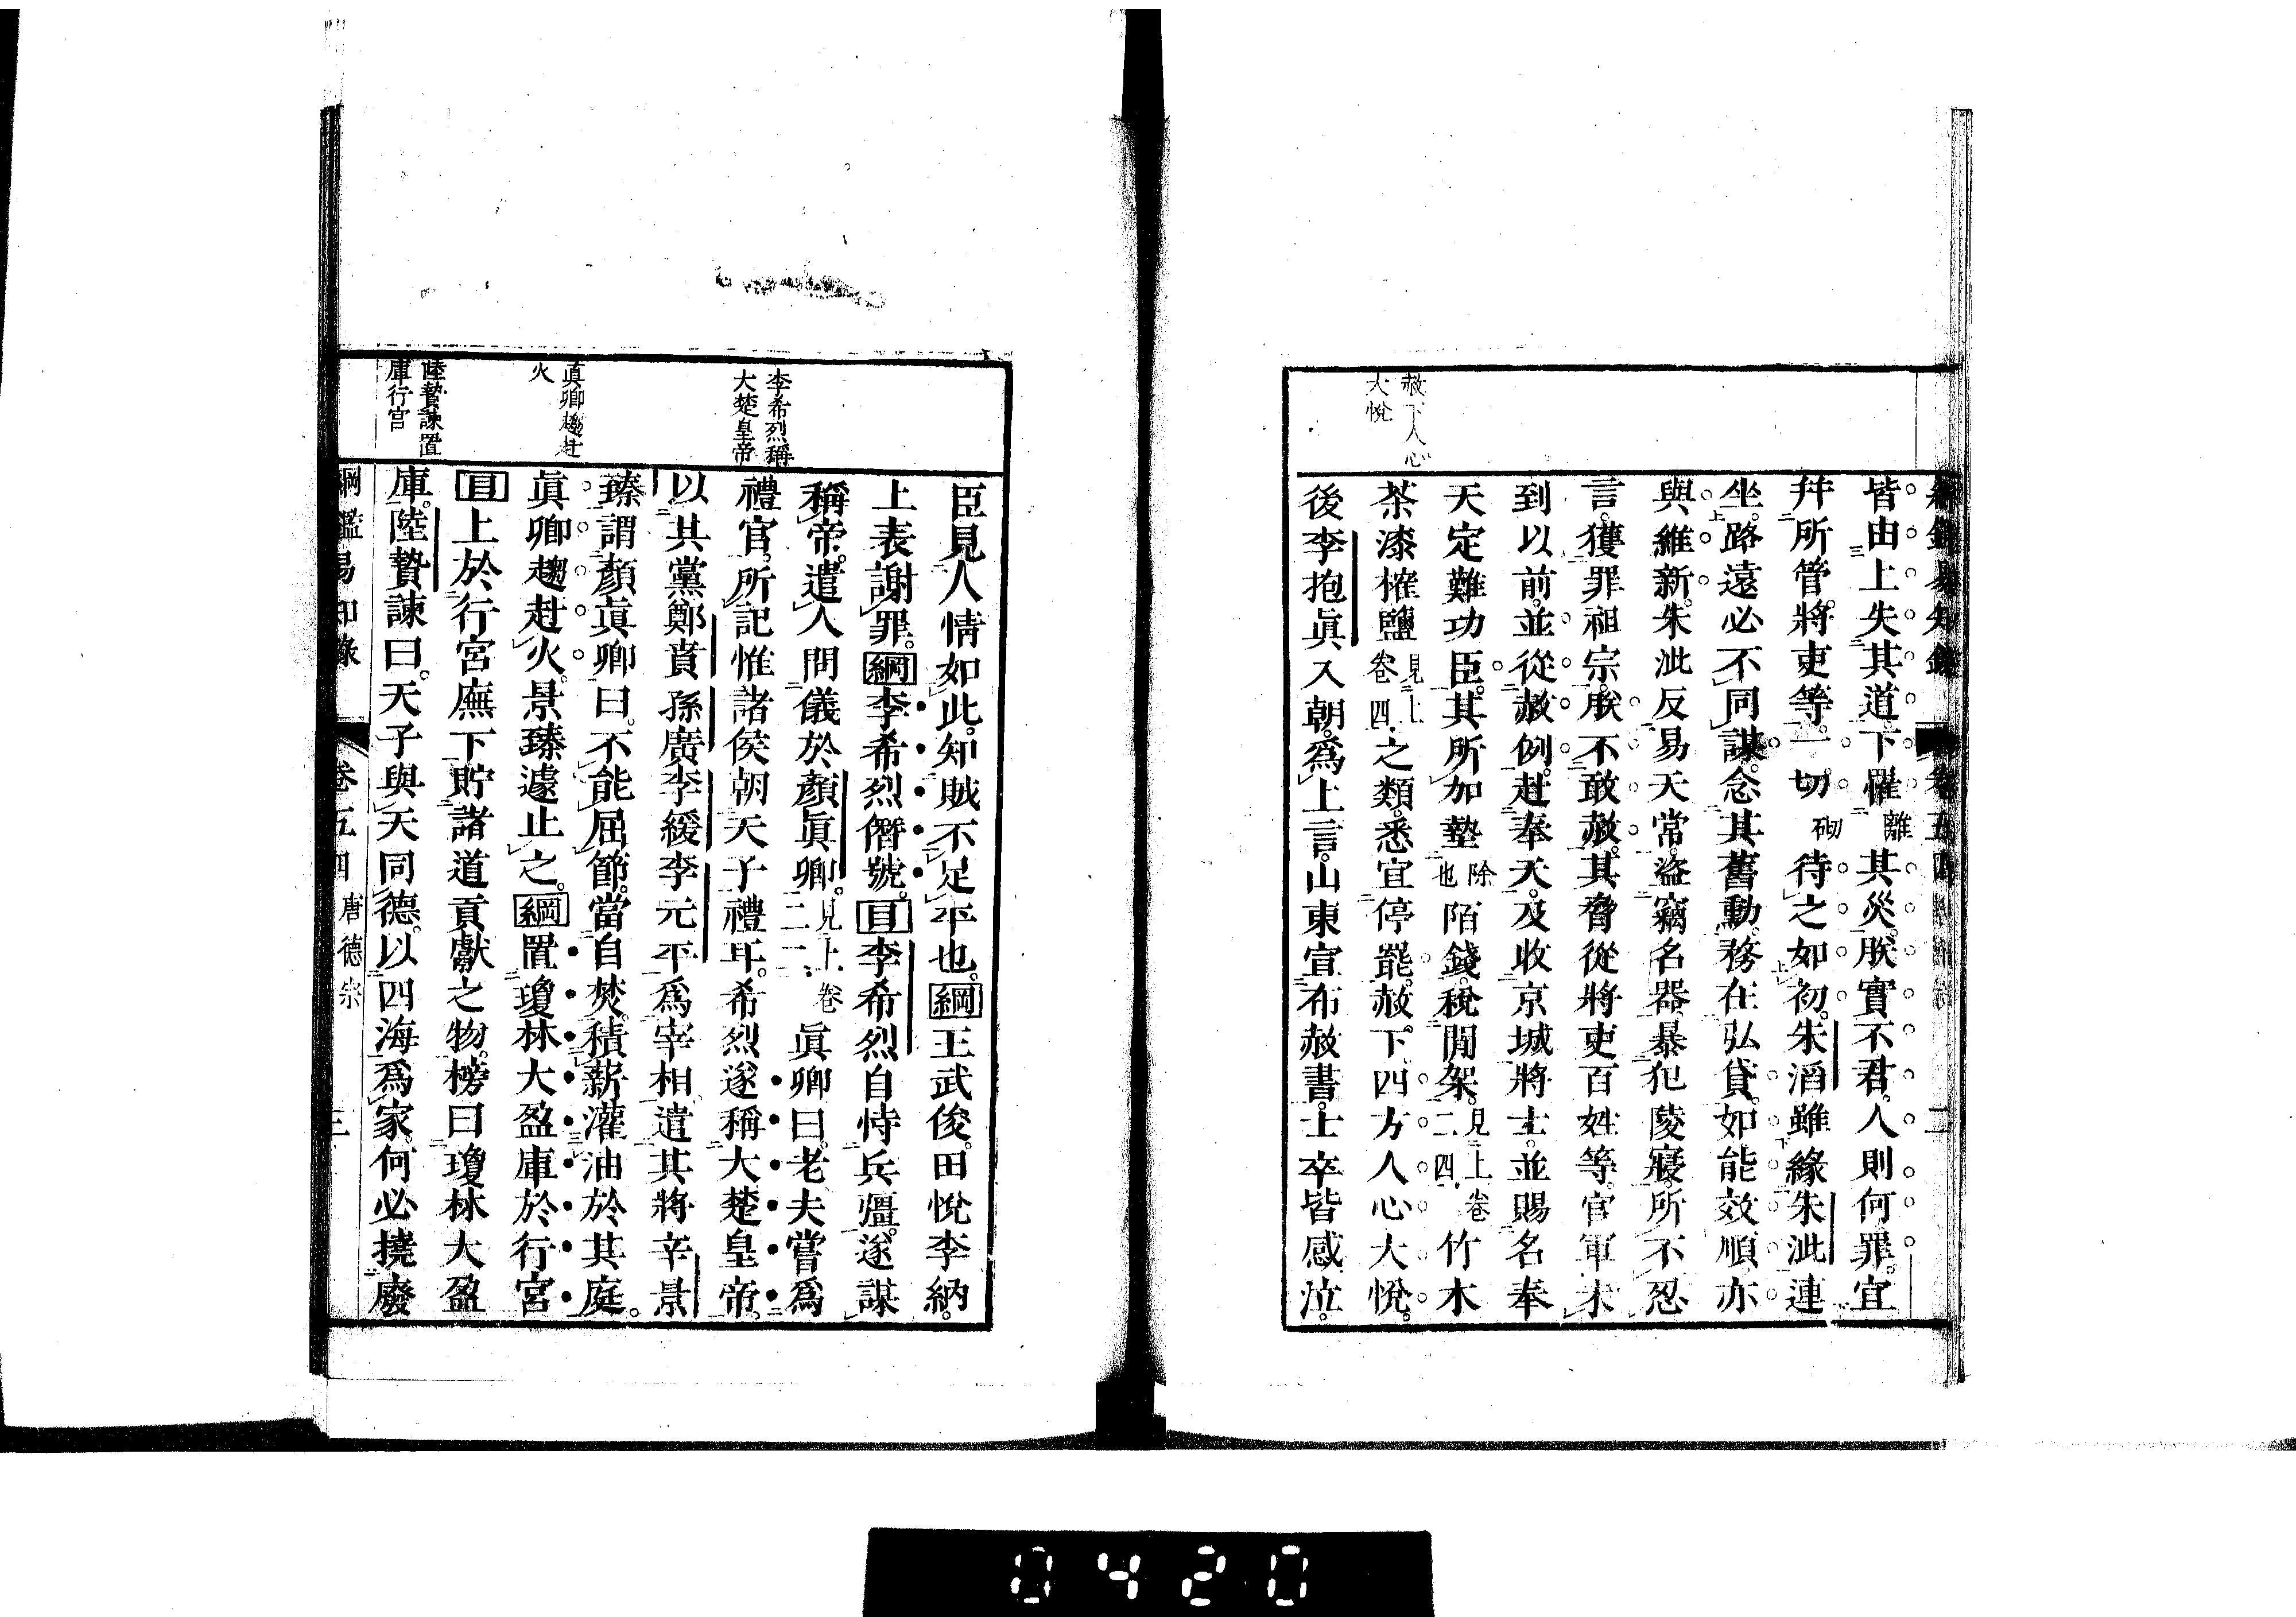 赦下人心
大悅
皆由上失其道。下罹離其災。朕實不君。人則何罪。宜
幷所管將吏等。一切砌待之如初。朱滔雖緣朱泚連
坐。路遠必不同謀。念其舊勳。務在弘貸。如能效順亦
與維新。朱泚反易天常。盜竊名器。暴犯陵寢。所不忍
言。獲罪祖宗。朕不敢赦。其脅從將吏百姓等。官軍未
到以前。並從赦例。赴奉天。及收京城將士。並賜名奉
天定難功臣。其所加墊除也陌錢。稅閒架。見上卷二四竹木
茶漆榷鹽見上卷四之類。悉宜停罷。赦下。四方人心大悅。
後李抱眞入朝。爲上言。山東宣布赦書。士卒皆感泣。
李希烈稱
大楚皇帝
眞卿趨赴
火
陸贄諫置
庫行宮
臣見人情如此。知賊不足平也。綱王武俊。田悅李納。
上表謝罪。綱李希烈僭號。目李希烈自恃兵彊。遂謀
稱帝。遣人問儀於顏眞卿。見上卷二二眞卿曰。老夫嘗爲
禮官。所記惟諸侯朝天子禮耳。希烈遂稱大楚皇帝。
以其黨鄭賁孫廣李緩李元平爲宰相。遣其將辛景
臻謂顏眞卿曰。不能屈節。當自焚。積薪灌油於其庭。
眞卿趨赴火。景臻遽止之。綱置瓊林大盈庫於行宮
目上於行宮廡下貯諸道貢獻之物。榜曰瓊林大盈
庫。陸贄諫曰。天子與天同德。以四海爲家。何必撓廢
綱鑑易知錄 卷五四 唐德宗 三
0420